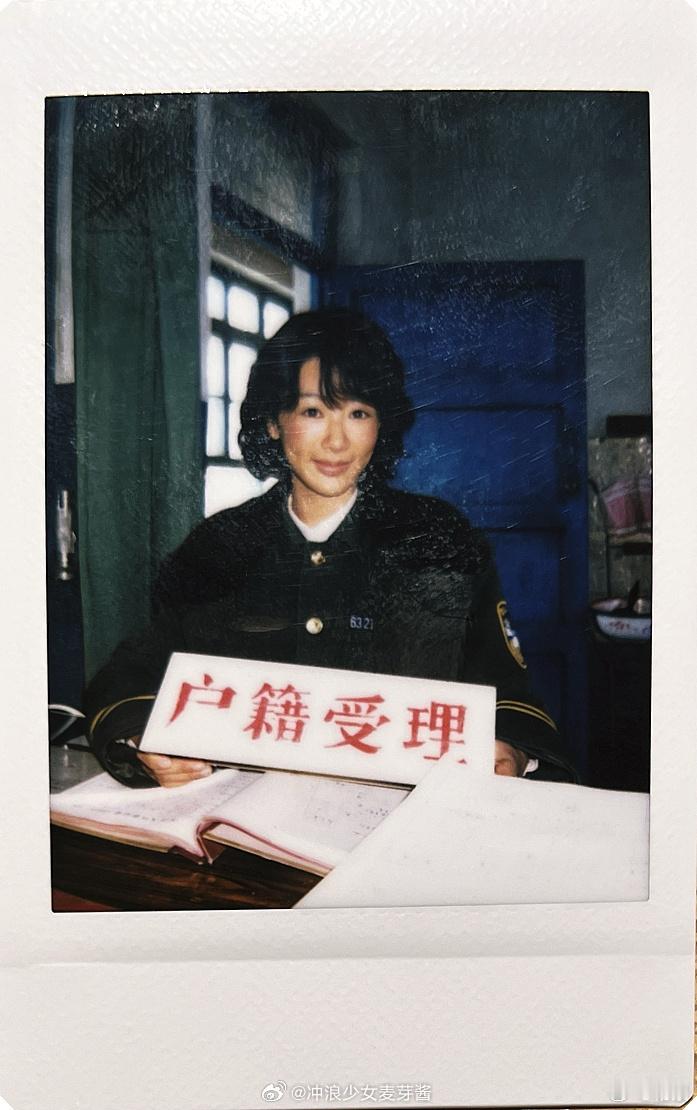 6321
户籍受理
@冲浪少女麦芽酱